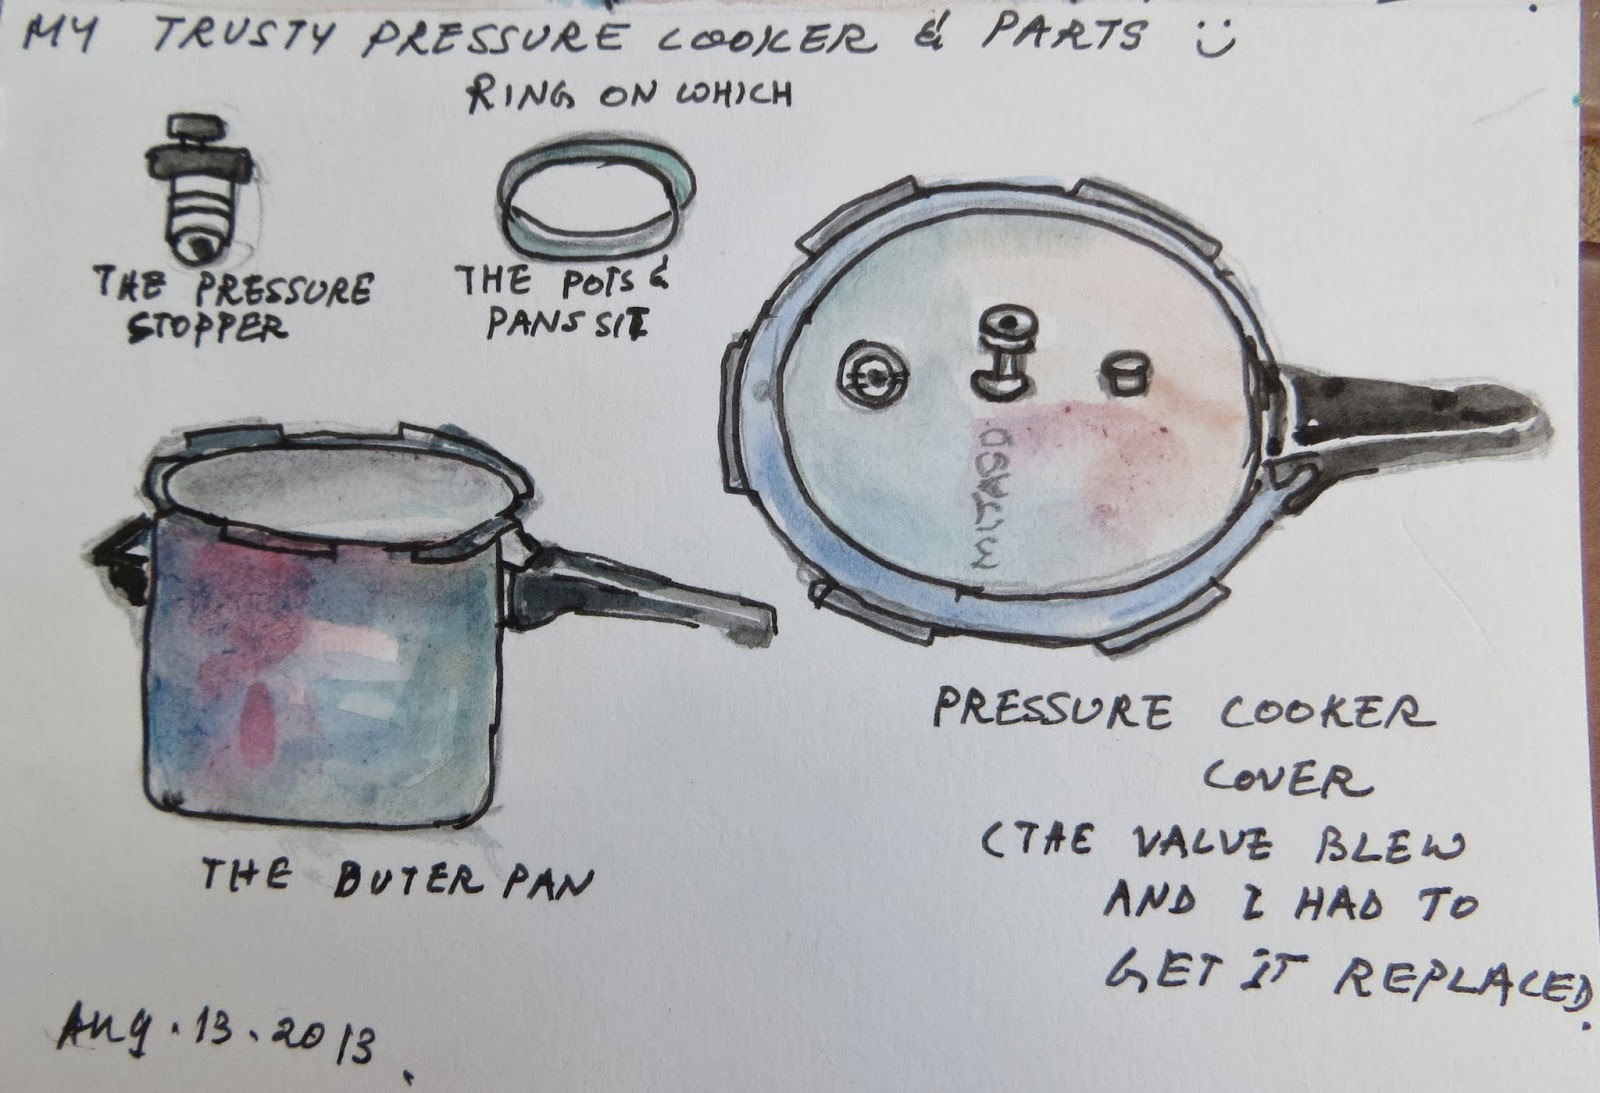 MY TRUSTY PRESSURE COOKER & PARTS :)
RING ON WHICH
THE POTS &
PANS SIT
THE PRESSURE
STOPPER
THE OUTER PAN
PRESSURE COOKER
COVER
(THE VALVE BLEW
AND I HAD TO
GET IT REPLACED.
Aug. 13. 2013.